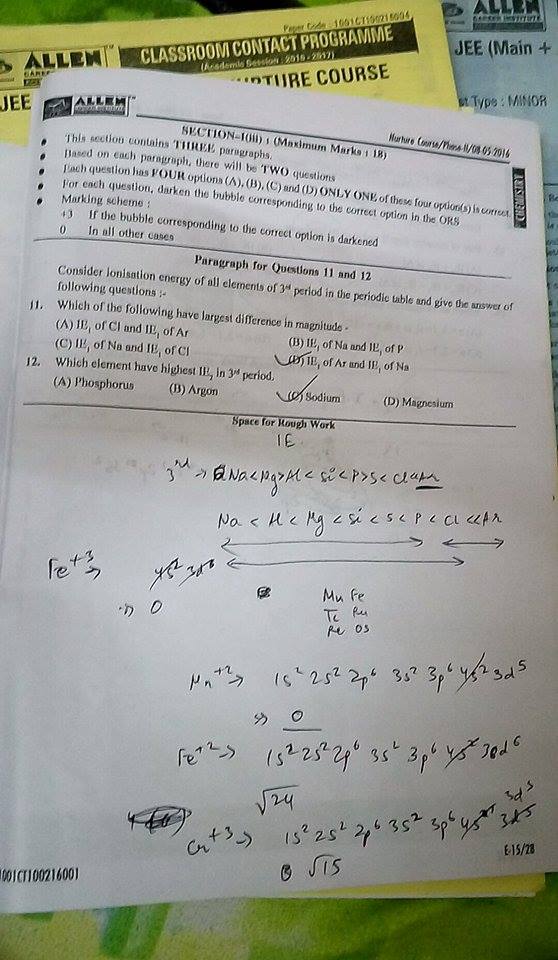 Paper Code : 1001CT100216004
ALLEN
CLASSROOM CONTACT PROGRAMME
(Academic Session : 2016 - 2017)
JEE
NURTURE COURSE
ALLEN
CAREER INSTITUTE
JEE (Main +
st Type : MINOR
ALLEN
SECTION-I(iii) : (Maximum Marks : 18)
Nurture Course/Phase-II/08-05-2016
CHEMISTRY
• This section contains THREE paragraphs.
• Based on each paragraph, there will be TWO questions
• Each question has FOUR options (A), (B), (C) and (D) ONLY ONE of these four option(s) is correct.
• For each question, darken the bubble corresponding to the correct option in the ORS
• Marking scheme :
+3 If the bubble corresponding to the correct option is darkened
0 In all other cases
Paragraph for Questions 11 and 12
Consider ionisation energy of all elements of 3rd period in the periodic table and give the answer of
following questions :-
11. Which of the following have largest difference in magnitude -
(A) IE₁ of Cl and IE₁ of Ar (B) IE₁ of Na and IE₁ of P
(C) IE₁ of Na and IE₁ of Cl (D) IE₁ of Ar and IE₁ of Na
12. Which element have highest IE₂ in 3rd period.
(A) Phosphorus (B) Argon (C) Sodium (D) Magnesium
Space for Rough Work
IE
3rd → Na < Mg > Al < Si < P > S < Cl << Ar
Na < Al < Mg < Si < S < P < Cl << Ar
Fe+3 → 4s² 3d⁶
⇒ 0
Mn Fe
Tc Ru
Re Os
Mn+2 → 1s² 2s² 2p⁶ 3s² 3p⁶ 4s² 3d⁵
⇒ 0
Fe+2 → 1s² 2s² 2p⁶ 3s² 3p⁶ 4s² 3d⁶
√24
3d³
Cr+3 → 1s² 2s² 2p⁶ 3s² 3p⁶ 4s¹ 3d⁵
√15
E-15/28
1001CT100216001